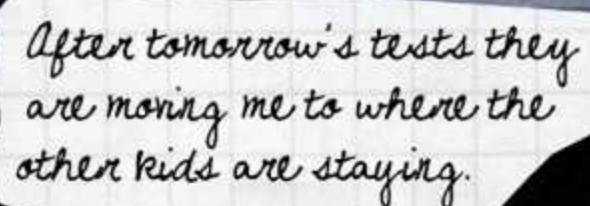 After tomorrow's tests they
are moving me to where the
other kids are staying.